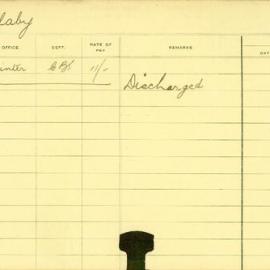 laby
OFFICE DEPT. RATE OF PAY REMARKS
inter 11/- Discharged